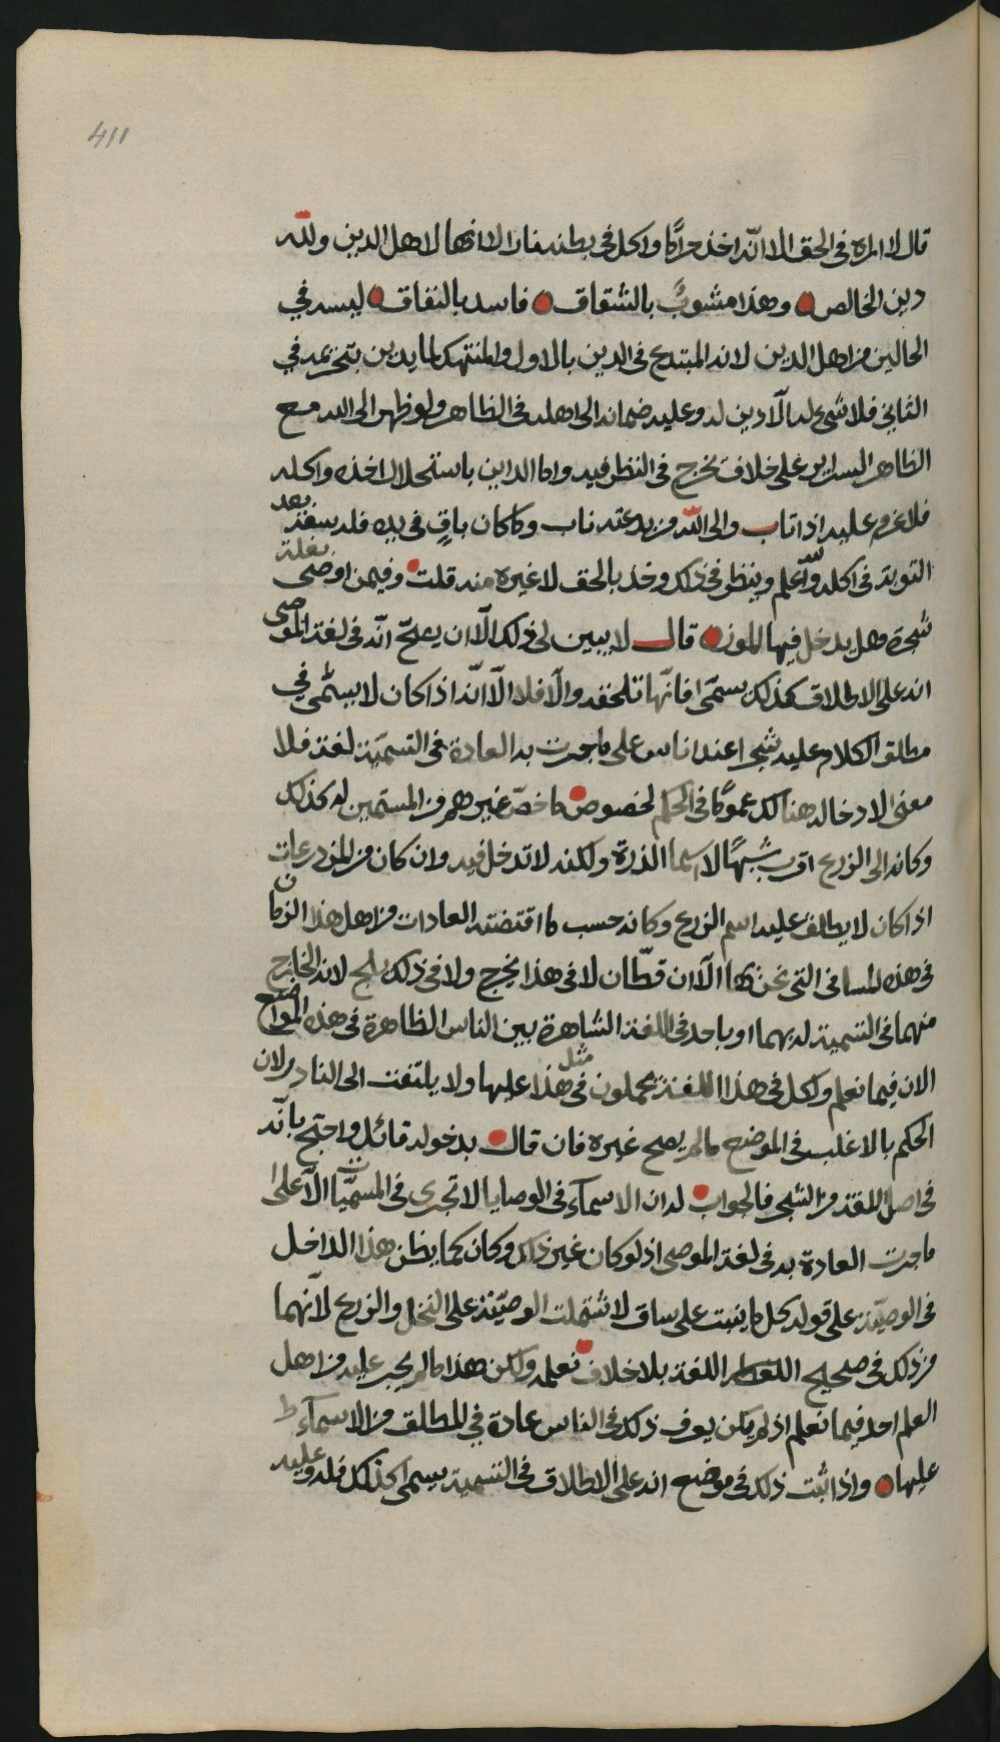 411
قال لا اراه في الحق الا انه اخذ حراما واكل في بطنه نارا لانها لاهل الدين ولله
دين الخالص وهذا مشوب بالشقاق فاسد بالنفاق ليس في
الحالين من اهل الدين لانه المبتدع في الدين بالاول والمنتهك لما يدين بتحريمه في
الثاني فلا شيء له الا دين له وعليه ضمانه الى اهله في الظاهر ولو ظهر الى الله مع
الظاهر السراير على خلاف تخرج في النظر فيه واما الداين باستحلال اخذه واكله
فلا غرم عليه اذا تاب والى الله من بدعته ناب وما كان باق في يده فله بعد
التوبة في اكله والله اعلم وينظر في ذلك وخذ بالحق لا غيره منه قلت وفيمن اوصى بغلة
شجرة هل يدخل فيها الموز قال لا يبين لي ذلك الا ان يصح انه في لغة الموصي
انه على الاطلاق كذلك يسمى فانها تلحقه والا فلا الا انه اذا كان لا يسمى في
مطلق الكلام عليه شجرا عند اناس على ما جرت به العادة في التسمية لغة فلا
معنى لادخاله هنالك عموما في الحكم لخصوص ما خص غيرهم من المسمين له كذلك
وكانه الى الزرع اقرب شبها لا سيما الذرة ولكنه لا تدخل فيه وان كان من المزدرعات
اذا كان لا يطلق عليه اسم الزرع وكانه حسب ما اقتضته العادات من اهل هذا الزمان
في هذه المسافى التي نحن بها الا ان قطان لا في هذا يخرج ولا في ذلك يلج لانه الخارج
منهما في التسمية له بهما او باحد في اللغة الشاهرة بين الناس الظاهرة في هذه المواضع
الان فيما نعلم ولكل في هذا اللغة يحملون في مثل هذا عليها ولا يلتفت الى النادر لان
الحكم بالاغلب في الموضع ما لم يصح غيره فان قال بدخوله قائل واحتج بانه
في اصل اللغة من الشجر فالجواب له ان الاسماء في الوصايا لا تجري في المسميات الا على
ما جرت العادة به في لغة الموصي اذ لو كان غير ذلك وكان كما يظن هذا الداخل
في الوصية على قوله كل ما ينبت على ساق لاشتملت الوصية على النخل والزرع لانهما
من ذلك في صحيح اللغة بلا خلاف نعلمه ولكن هذا ما لم يجر عليه من اهل
العلم احد فيما نعلم اذ لم يكن يعرف ذلك في الناس عادة في المطلق من الاسماء
عليها واذا ثبت ذلك في موضع انه على الاطلاق في التسمية يسمى كذلك فله وعليه